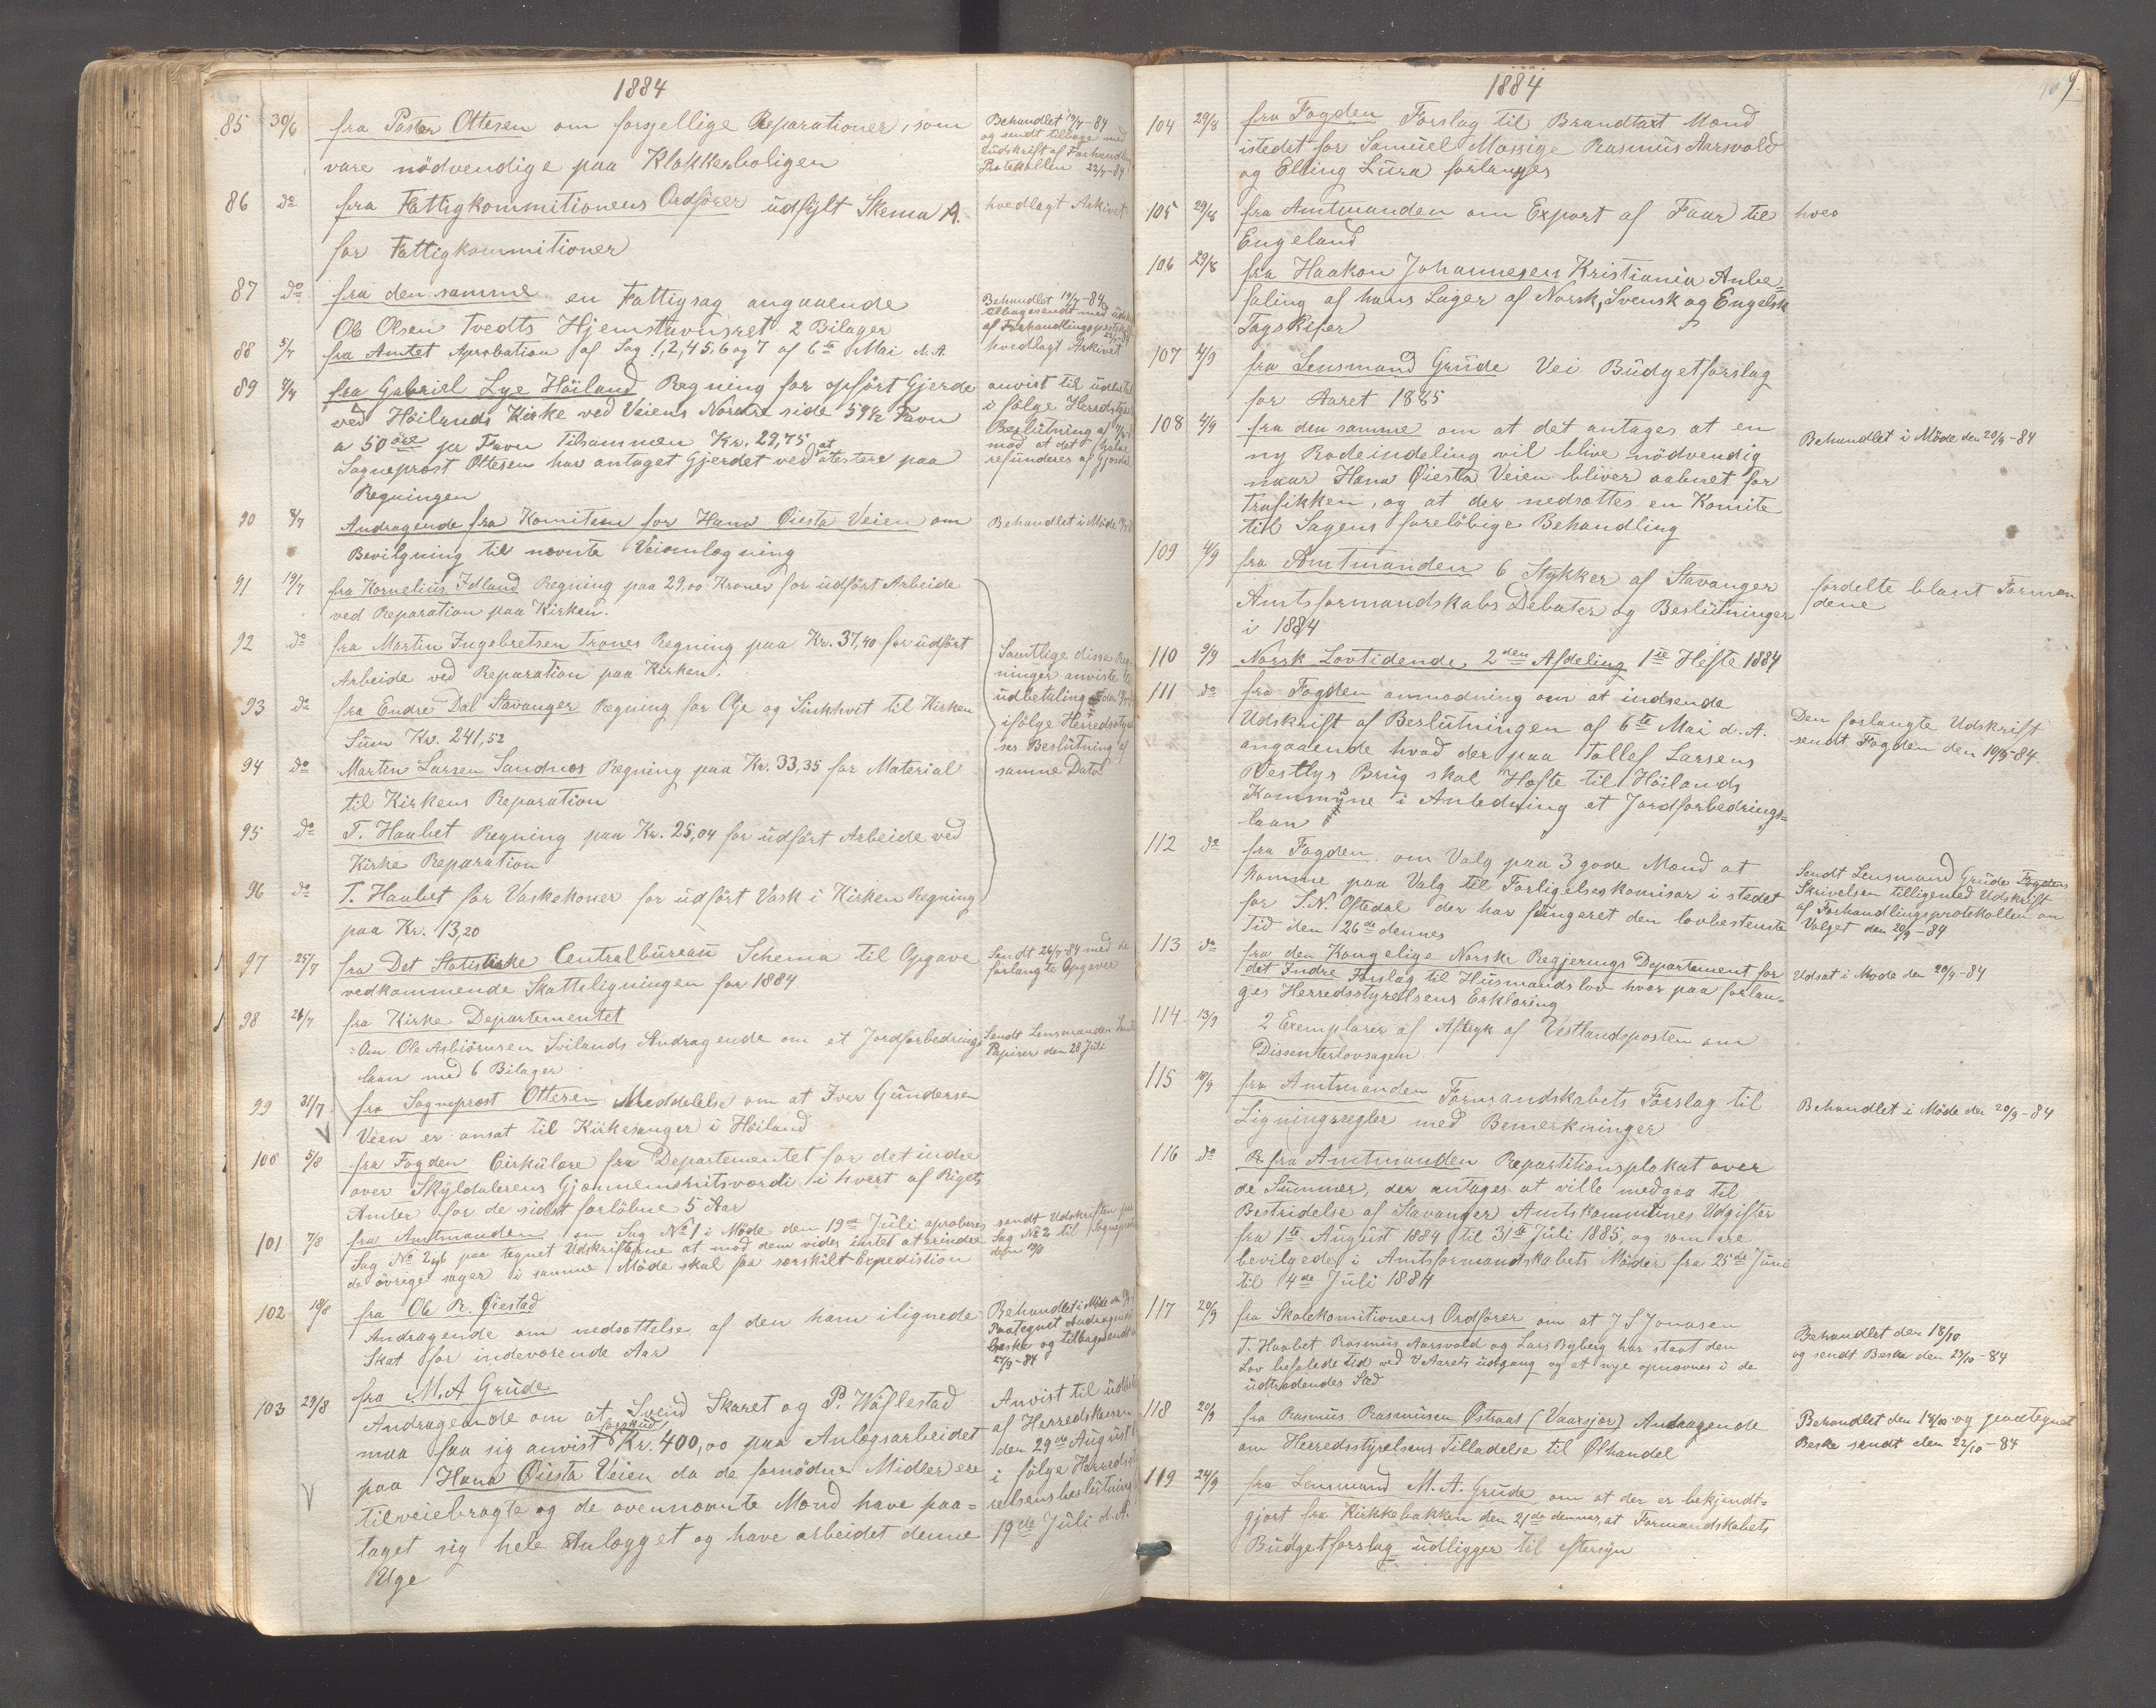 1884
85 30/6 fra Pastor Ottesen om forsjellige Reparationer, som
vare nödvendige paa Klokkerboligen
Behandlet 19/7-84
og sendt tilbage med
Udskrift af Forhandl
Protokollen 22/7-84
86 do fra Fattigkommitionens Ordförer udfylt Skema A.
for Fattigkommitioner
hvedlagt Arkivet
87 do fra den samme en Fattigsag angaaende
Ole Olsen Tvedts Hjemstavnsret 2 Bilager
Behandlet 19/7-84
tilbagesendt med
af Forhandlingsprotok
88 5/7 fra Amtet Aprobation af Sag 1, 2, 4 5. 6 og 7 af 6te Mai d. A.
hvedlagt Arkivet
89 fra Gabriel Lye Höiland Regning for opfört Gjerde
ved Höilands Kirke ved Veiens Nordre side 59 1/2 Favn
a 50 öre pr Favn Tilsammen Kr. 29,75
Sogneprost Ottesen har antaget Gjerdet ved at atestere paa
Regningen
anvist til udbetal
i fölge Herredsty
Beslutning af
mod at det
refunderes af
90 8/7 Andragende fra Komiteen for Hana Öiesta Veien om
Bevilgning til nævnte Veianlægning
Behandlet i Möde
91 19/7 fra Kornelius Idland Regning paa 29,00 Kroner for udfört Arbeide
ved Reparation paa Kirken.
92 do fra Martin Ingebretsen Trones Regning paa Kr. 37,40 for udfört
Arbeide ved Reparation paa Kirken.
93 do fra Endre Dal Stavanger Regning for Olje og Sinkhvit til Kirken
Sum Kr. 241,52
94 do Martin Larsen Sandnes Regning paa Kr. 33,35 for Material
til Kirkens Reparation
95 do T. Haabet Regning paa Kr. 25,04 for udfört Arbeide ved
Kirke Reparation
96 do T. Haabet for Vaskekoner for udfört Vask i Kirken Regning
paa Kr. 13,20
Samtlige disse Reg
ninger anviste til
udbetaling
ifölge Herredssty
ses Beslutning af
samme Dato
97 25/7 fra Det Statistiske Centralbureau Schema til Opgave
vedkommende Skatteligningen for 1884
Sendt 26/7-84 med de
forlangte Opgaver
98 26/7 fra Kirke Departementet
Om Ole Asbiörnsen Svilands Andragende om et Jordforbedrings
laan med 6 Bilager
Sendt Lensmanden
Papirer den 28 Juli
99 31/7 fra Sogneprost Ottesen Meddelelse om at Iver Gundersen
Veien er ansat til Kirkesanger i Höiland
100 5/8 fra Fogden Cirkulære fra Departementet for det indre
over Skyldalerens Gjænnemsnitsværdi i hvert af Rigets
Amter for de sidst forlöbne 5 Aar
101 7/8 fra Amtmanden om Sag No 1 i Möde den 19de Juli aproberes
Sag No 2 og 6 paa tegnet Udskrifterne at mod dem vides intet at erindre
de övrige sager i samme Möde skal faa særskilt Expedistion
sendt Udskriften paa
Sag No 2 til Sognepr
102 18/8 fra Ole R. Öiestad
Andragende om nedsættelse af den ham ilignede
Skat for indeværende Aar
Behandlet i Möde
Paategnet Andragend
beske og tilbagesendt
27/9-84
103 29/8 fra M. A Grude
Andragende om at Sveind Skaret og P. Waglestad
maa faa sig anvist forskud Kr. 400,00 paa Anlægsarbeidet
paa Hana Öiesta Veien da de fornödne Midler ere
tilveiebragte og de ovennævnte Mænd have paa=
taget sig hele Anlægget og have arbeidet denne
Uge
Anvist til udbet
af Herredskassen
den 29de August
i fölge Herredssty
relsens beslutning
19de Juli d. A.
1884
104 29/8 fra Fogden Forslag til Brandtaxt Mænd
istedet for Samuel Mossige Rasmus Aarsvold
og Elling Lura forlanges
105 29/8 fra Amtmanden om Export af Faar til
Engeland
hveo
106 29/8 fra Haakon Johannesen Kristiania Anbe=
faling af hans Lager af Norsk, Svensk og Engelsk
Tagskifer
107 4/9 fra Lensmand Grude Vei Budgetforslag
for Aaret 1885
108 4/9 fra den samme om at det antages at en
ny Rodeindeling vil blive nödvendig
naar Hana Öiesta Veien bliver aabnet for
Trafikken, og at der nedsættes en Komite
til Sagens forelöbige Behandling
Behandlet i Möde den 20/9-84
109 4/9 fra Amtmanden 6 Stykker af Stavanger
Amtsformandskabs Debater og Beslutninger
i 1884
fordelte blant Formæn
dene
110 9/9 Norsk Lovtidende, 2den Afdeling 1ste Hefte 1884
111 do fra Fogden anmodning om at indsende
Udskrift af Beslutningen af 6te Mai d. A.
angaaende hvad der paa Tollef Larsens
Vestlys Brug skal Hæfte til Höilands
Kommune i Anledning et Jordforbedrings=
laan
Den forlangte Udskrift
sendt Fogden den 10/9-84.
112 do fra Fogden om Valg paa 3 gode Mænd at
komme paa Valg til Forligelseskomisær i stedet
for S. N. Oftedal der har fungeret den lovbestemte
Tid den 26de dennes
Sendt Lensmand Grude Fogdens
Skrivelsen tilligemed Udskrift
af Forhandlingsprotokollen om
Valget den 20/9-84
113 do fra den Kongelige Norske Regjerings Departement for
det Indre Forslag til Husmandslov hvor paa forlan=
ges Herredsstyrelsens Erklæring
Udsat i Møde den 20/9-84
114. 13/9 2 Exemplarer af Aftryk af Vestlandsposten om
Dissenterlovsagen
115 18/9 fra Amtmanden Formandskabets Forslag til
Ligningsregler med Bemerkninger
Behandlet i Möde den 20/9-84
116 do fra Amtmanden Repartitionsplakat over
de Summer, der antages at ville medgaa til
Bestridelse af Stavanger Amtskommunes Udgifter
fra 1ste August 1884 til 31te Juli 1885, og som ere
bevilgede i Amtsformandskabets Möder fra 25de Juni
til 4de Juli 1884
117 20/9 fra Skolekomitionens Ordförer om at J S Jonasen
T. Haabet Rasmus Aarsvold og Lars Byberg har staat den
Lov befalede Tid ved Aarets udgang og at nye opnævnes i de
udtrædendes Sted
Behandlet den 18/10
og sendt Beske den 23/10-84
118 20/9 fra Rasmus Rasmusen Østraat (Vaarsjor) Andragende
om Herredsstyrelsens Tilladelse til Ølhandel
Behandlet den 18/10 og paategnet
Beske sendt den 22/10-84
119 24/9 fra Lensmand M. A. Grude om at der er bekjendt=
gjort fra Kirkkebakken den 21de dennes, at Formandskabets
Budgetforslag udligger til eftersyn